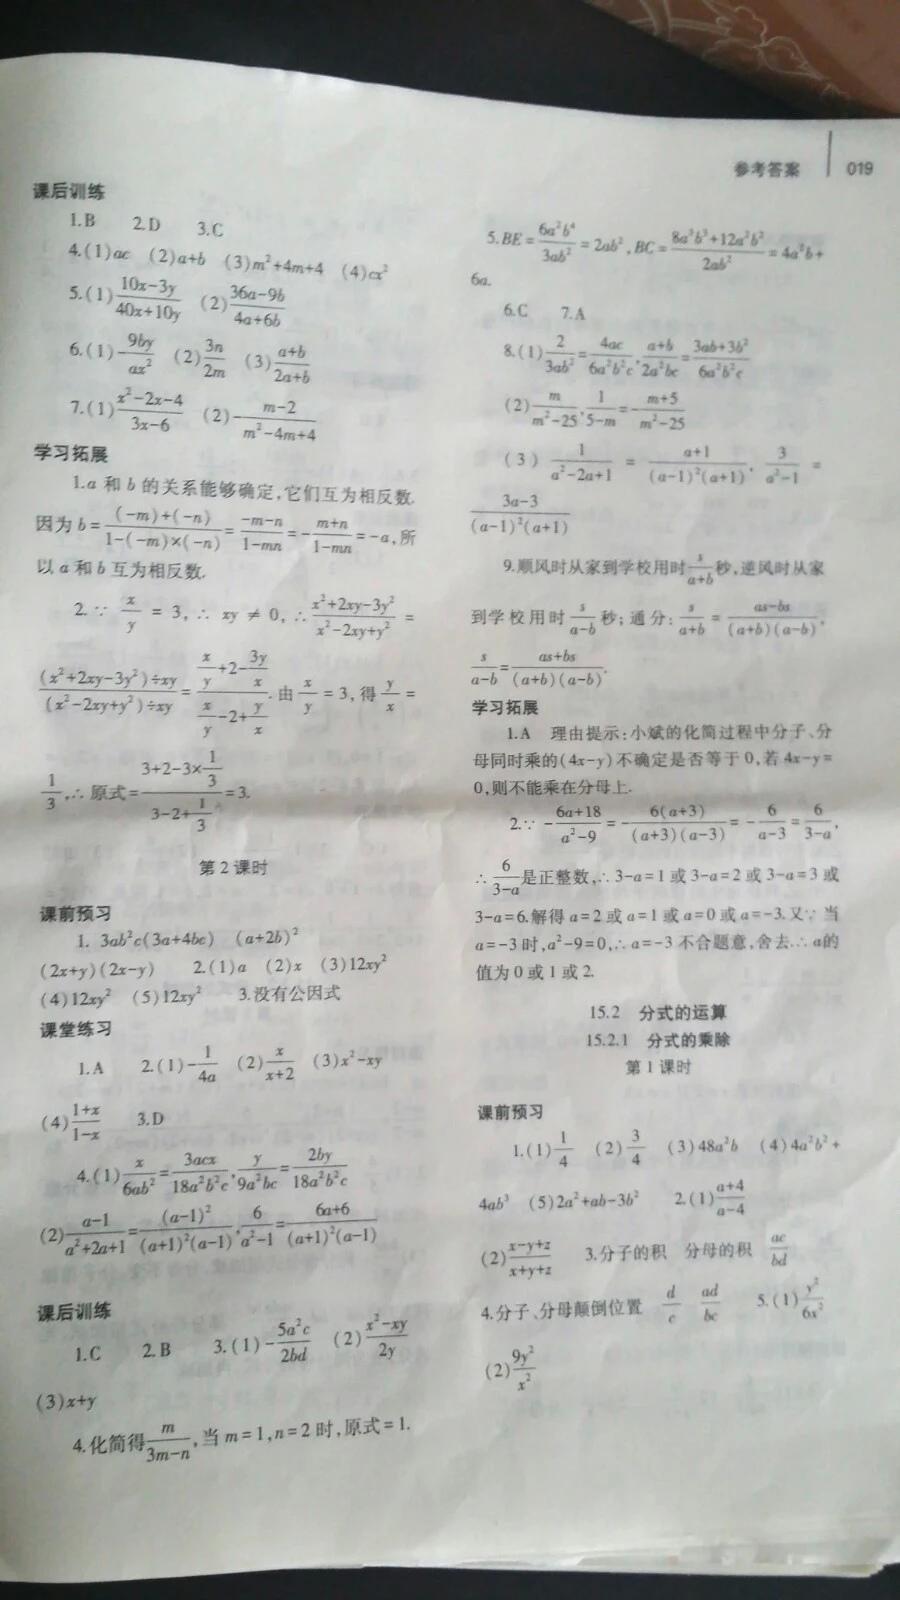 参考答案 019
课后训练
1.B 2.D 3.C
4.(1)ac (2)a+b (3)m²+4m+4 (4)cx²
5.(1)\frac{10x-3y}{40x+10y} (2)\frac{36a-9b}{4a+6b}
6.(1)-\frac{9by}{ax²} (2)\frac{3n}{2m} (3)\frac{a+b}{2a+b}
7.(1)\frac{x²-2x-4}{3x-6} (2)-\frac{m-2}{m²-4m+4}
学习拓展
1.a 和 b 的关系能够确定,它们互为相反数.
因为 b=\frac{(-m)+(-n)}{1-(-m)×(-n)}=\frac{-m-n}{1-mn}=-\frac{m+n}{1-mn}=-a,所
以 a 和 b 互为相反数.
2.∵ \frac{x}{y}=3,∴ xy≠0,∴\frac{x²+2xy-3y²}{x²-2xy+y²}=
\frac{(x²+2xy-3y²)÷xy}{(x²-2xy+y²)÷xy}=\frac{\frac{x}{y}+2-\frac{3y}{x}}{\frac{x}{y}-2+\frac{y}{x}}.由\frac{x}{y}=3,得\frac{y}{x}=
\frac{1}{3},∴原式=\frac{3+2-3×\frac{1}{3}}{3-2+\frac{1}{3}}=3.
第 2 课时
课前预习
1. 3ab²c(3a+4bc) (a+2b)²
(2x+y)(2x-y) 2.(1)a (2)x (3)12xy²
(4)12xy² (5)12xy² 3.没有公因式
课堂练习
1.A 2.(1)-\frac{1}{4a} (2)\frac{x}{x+2} (3)x²-xy
(4)\frac{1+x}{1-x} 3.D
4.(1)\frac{x}{6ab²}=\frac{3acx}{18a²b²c},\frac{y}{9a²bc}=\frac{2by}{18a²b²c}
(2)\frac{a-1}{a²+2a+1}=\frac{(a-1)²}{(a+1)²(a-1)},\frac{6}{a²-1}=\frac{6a+6}{(a+1)²(a-1)}
课后训练
1.C 2.B 3.(1)-\frac{5a²c}{2bd} (2)\frac{x²-xy}{2y}
(3)x+y
4.化简得\frac{m}{3m-n},当 m=1,n=2 时,原式=1.
5.BE=\frac{6a²b⁴}{3ab²}=2ab²,BC=\frac{8a³b³+12a²b²}{2ab²}=4a²b+
6a.
6.C 7.A
8.(1)\frac{2}{3ab²}=\frac{4ac}{6a²b²c},\frac{a+b}{2a²bc}=\frac{3ab+3b²}{6a²b²c}
(2)\frac{m}{m²-25},\frac{1}{5-m}=-\frac{m+5}{m²-25}
(3)\frac{1}{a²-2a+1}=\frac{a+1}{(a-1)²(a+1)},\frac{3}{a²-1}=
\frac{3a-3}{(a-1)²(a+1)}
9.顺风时从家到学校用时\frac{s}{a+b}秒,逆风时从家
到学校用时\frac{s}{a-b}秒;通分:\frac{s}{a+b}=\frac{as-bs}{(a+b)(a-b)},
\frac{s}{a-b}=\frac{as+bs}{(a+b)(a-b)}.
学习拓展
1.A 理由提示:小斌的化简过程中分子、分
母同时乘的(4x-y)不确定是否等于0,若 4x-y=
0,则不能乘在分母上.
2.∵ -\frac{6a+18}{a²-9}=-\frac{6(a+3)}{(a+3)(a-3)}=-\frac{6}{a-3}=\frac{6}{3-a},
∴\frac{6}{3-a}是正整数,∴3-a=1 或 3-a=2 或 3-a=3 或
3-a=6.解得 a=2 或 a=1 或 a=0 或 a=-3.又∵ 当
a=-3 时,a²-9=0,∴a=-3 不合题意,舍去.∴a的
值为 0 或 1 或 2.
15.2 分式的运算
15.2.1 分式的乘除
第 1 课时
课前预习
1.(1)\frac{1}{4} (2)\frac{3}{4} (3)48a²b (4)4a²b²+
4ab³ (5)2a²+ab-3b² 2.(1)\frac{a+4}{a-4}
(2)\frac{x-y+z}{x+y+z} 3.分子的积 分母的积 \frac{ac}{bd}
4.分子、分母颠倒位置 \frac{d}{c} \frac{ad}{bc} 5.(1)\frac{y²}{6x²}
(2)\frac{9y²}{x²}